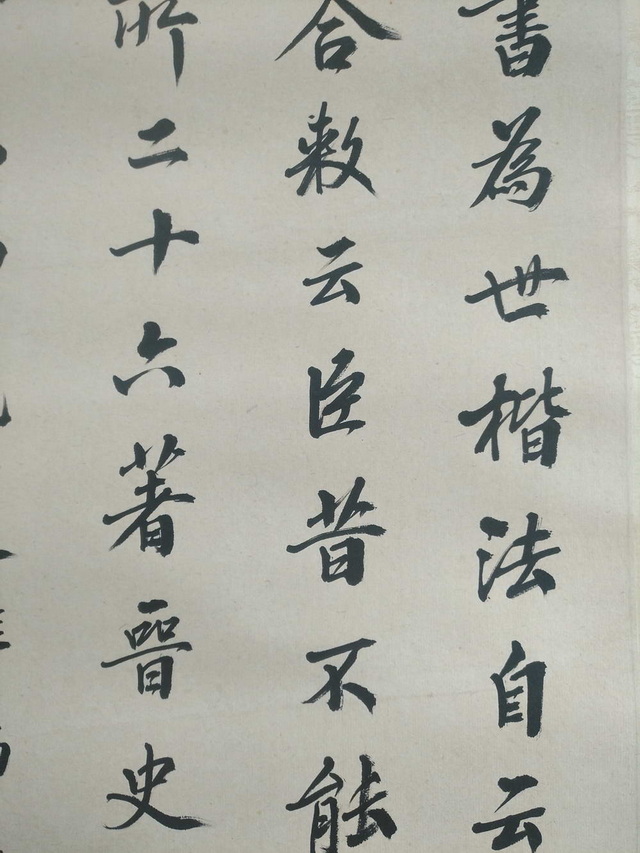 書為世楷法自云
合敕云臣昔不能
所二十六著晉史